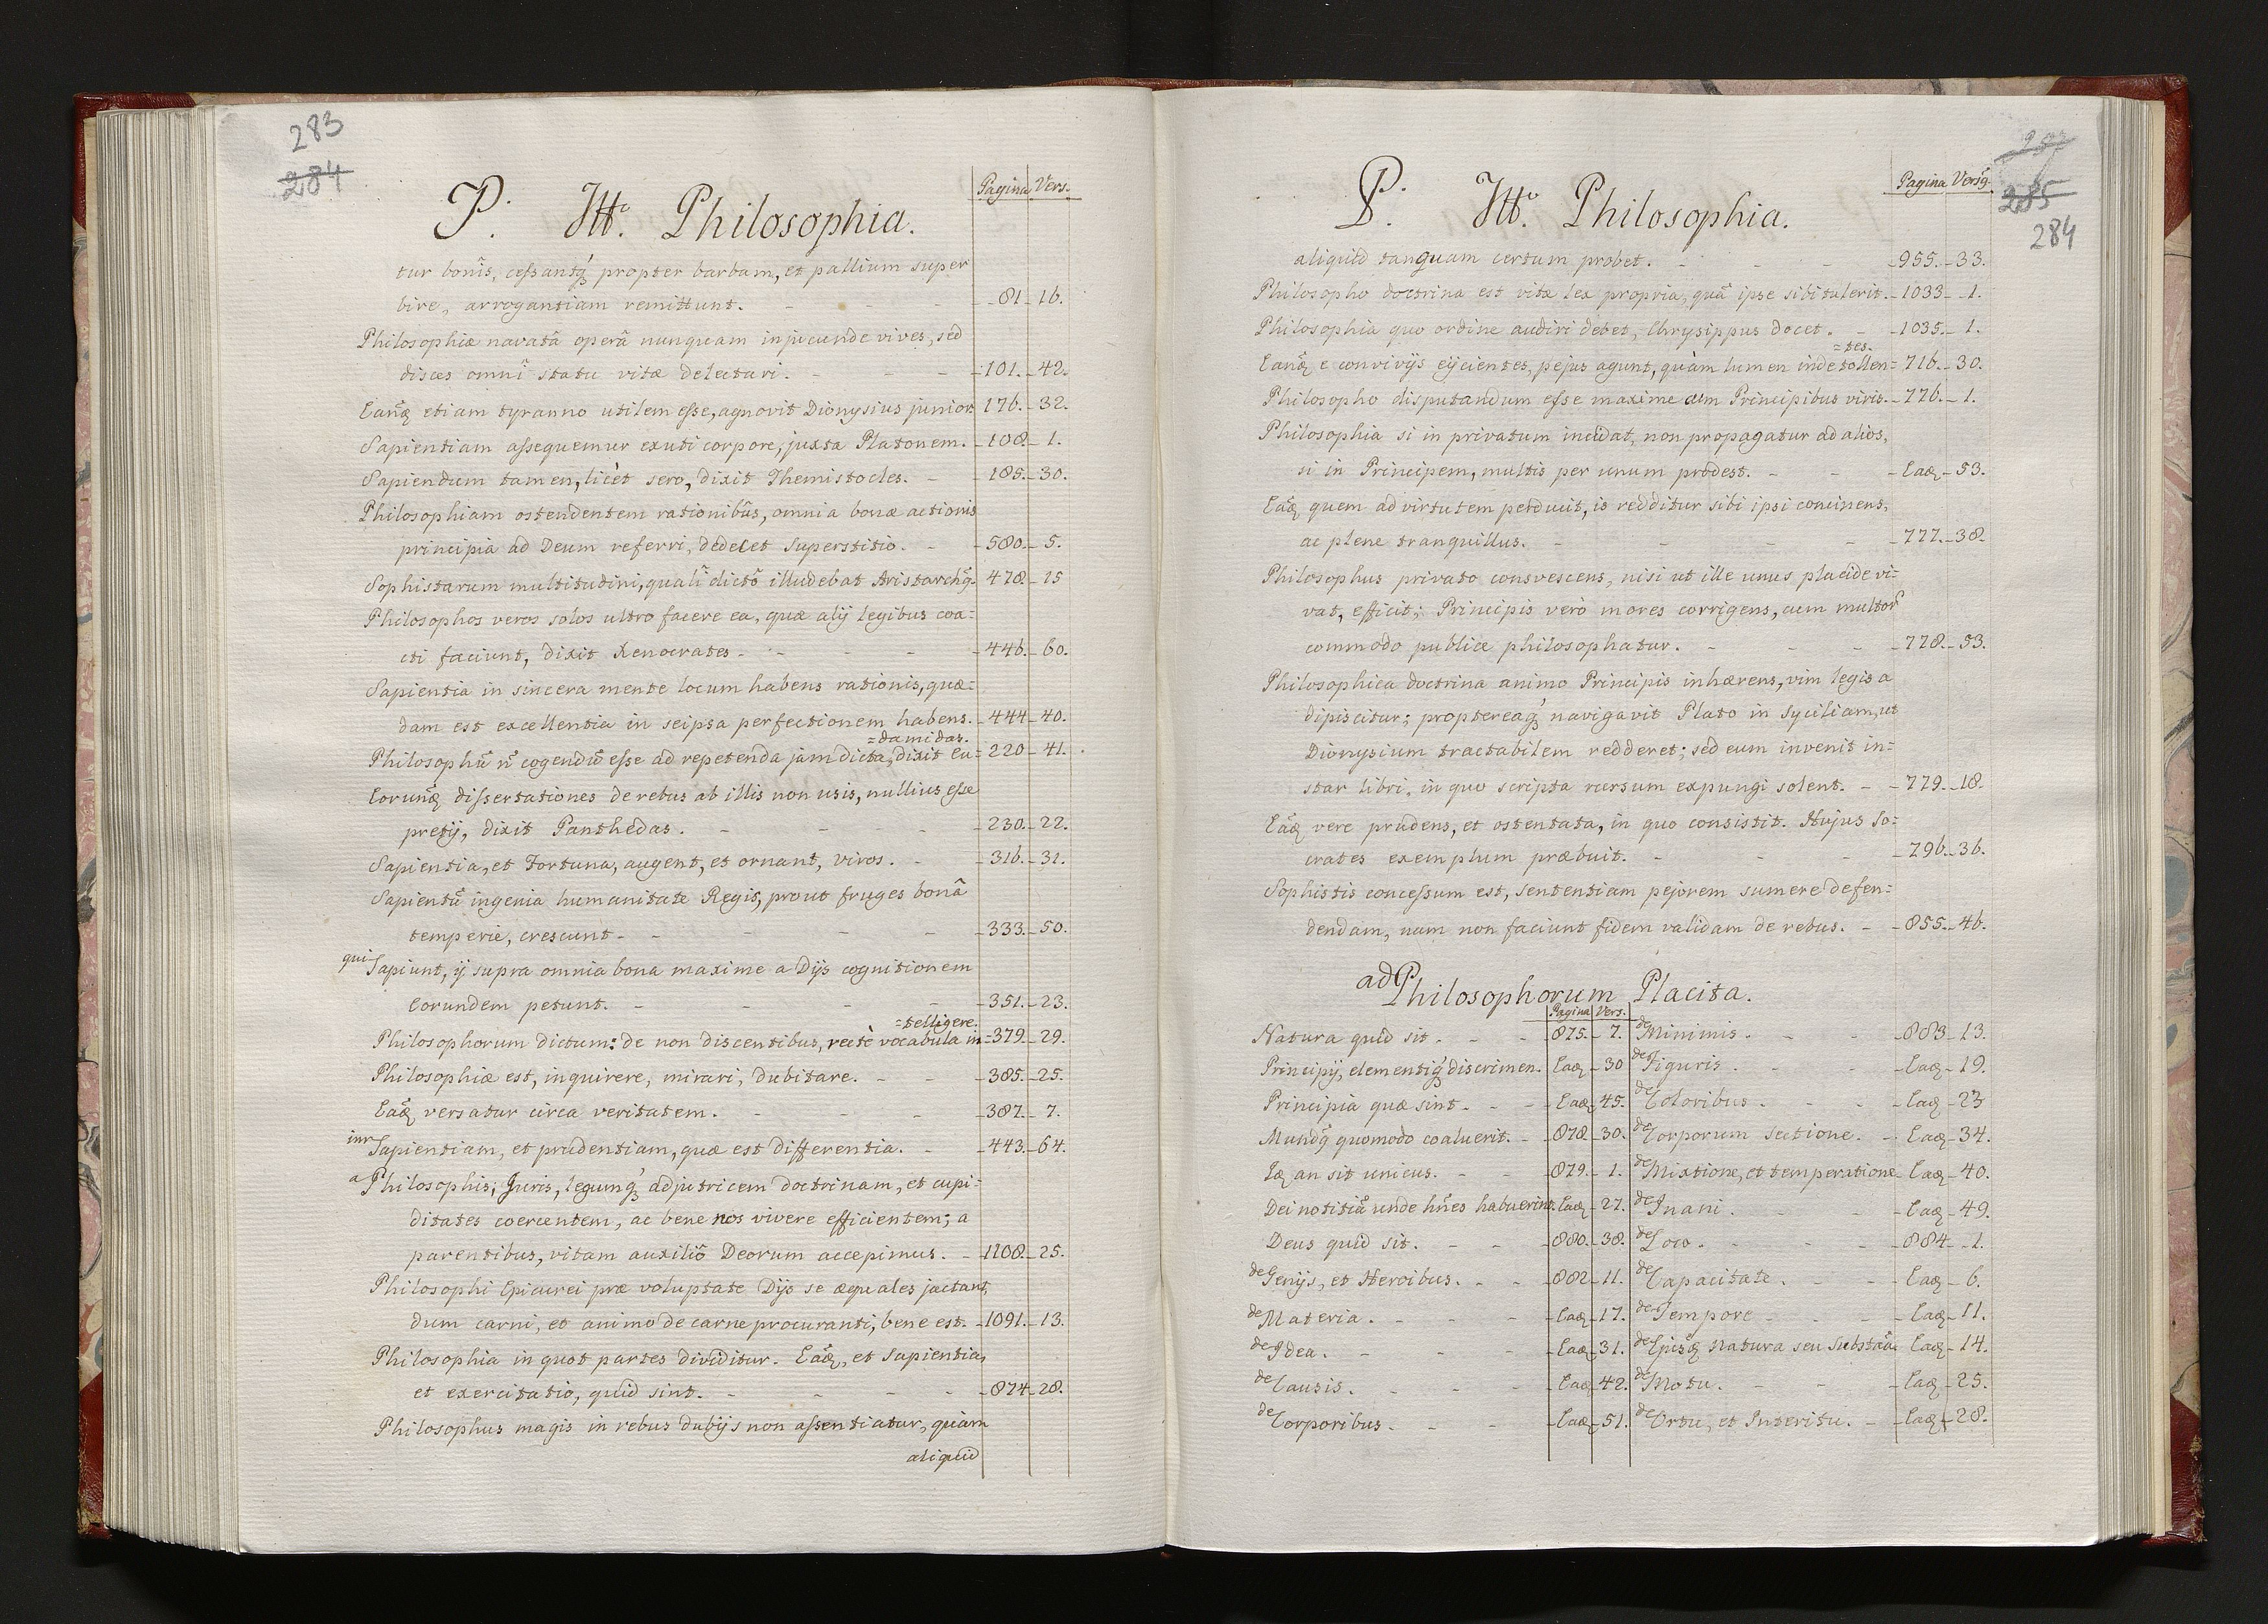 283
284
Pagina Vers.
P. Itto. Philosophia.
tur bonis, cessantq́ propter barbam, et pallium super
bire, arrogantiam remittunt. - 81 - 16.
Philosophiæ navatâ operâ nunquam injucunde vives, sed
disces omni statu vitæ delectari. - 101. - 42.
Eanq́ etiam tyranno utilem esse, agnovit Dionysius junior 176. - 32.
Sapientiam assequemur exuti corpore, juxta Platonem. - 108. - 1.
Sapiendum tamen, licèt sero, dixit Themistocles. - 185. - 30.
Philosophiam ostendentem rationibus, omnia bonæ actionis
principia ad Deum referri, dedecet Superstitio. - 580. - 5.
Sophistarum multitudini, quali dicto illudebat Aristarchq. - 478. - 15
Philosophos veros solos ultro facere ea, quæ alij legibus coa=
cti faciunt, dixit Xenocrates - 446. - 60.
Sapientia in sincera mente locum habens rationis, quæ=
dam est excellentia in seipsa perfectionem habens. - 444 - 40.
=damidas.
Philosophū n̄ cogendū esse ad repetenda jam dicta, dixit Eu= 220 - 41.
Eorunq́ dissertationes de rebus ab illis non usis, nullius esse
pretij, dixit Panthedas. - 230. - 22.
Sapientia, et Fortuna, augent, et ornant, viros. - 316. - 31.
Sapientū ingenia humanitate Regis, prout fruges bonâ
temperie, crescunt - 333. - 50.
qui Sapiunt, ij supra omnia bona maxime a Dijs cognitionem
Eorundem petunt. - 351. - 23.
=telligere.
Philosophorum dictum: de non discentibus, rectè vocabula in= 379. - 29.
Philosophiæ est, inquirere, mirari, dubitare. - 385. - 25.
Eaq́ versatur circa veritatem. - 387. - 7.
inr Sapientiam, et prudentiam, quæ est differentia. - 443. - 64.
a Philosophis, Juris, legumq́ adjutricem doctrinam, et cupi=
ditates coercentem, ac bene nos vivere efficientem; a
parentibus, vitam auxiliō Deorum accepimus. - 1108. - 25.
Philosophi Epicurei præ voluptate Dijs se æquales jactant,
dum carni, et animo de carne procuranti, bene est. - 1091. - 13.
Philosophia in quot partes dividitur. Eaq́, et Sapientia,
et exercitatio, quid sint. - 874 - 28.
Philosophus magis in rebus dubijs non assentiatur, quàm
aliquid
285
284
Pagina Versq.
P. Itto. Philosophia.
aliquid tanquam certum probet. - 955. - 33.
Philosopho doctrina est vitæ lex propria, quā ipse sibi tulerit. - 1033 - 1.
Philosophia quo ordine audiri debet, Chrysippus docet. - 1035. - 1.
=tes.
Eanq́ e convivijs ejicientes, pejus agunt, quàm lumen inde tollen= 716. - 30.
Philosopho disputandum esse maxime cum Principibus viris. - 776. - 1.
Philosophia si in privatum incidat, non propagatur ad alios,
si in Principem, multis per unum prodest. - Eaq - 53.
Eaq́ quem ad virtutem perducit, is redditur sibi ipsi concinens,
ac plene tranquillus. - 777. - 38.
Philosophus privato consvescens, nisi ut ille unus placide vi=
vat, efficit; Principis verò mores corrigens, cum multor
commodo publice philosophatur. - 778. - 53.
Philosophica doctrina animo Principis inhærens, vim legis a
dipiscitur; proptereaq́ navigavit Plato in Syciliam, ut
Dionysium tractabilem redderet; sed eum invenit in=
star libri, in quo scripta rursum expungi solent. - 779. - 18.
Eaq́ vere prudens, et ostentata, in quo consistit. Hujus So=
crates exemplum præbuit. - 796. - 36.
Sophistis concessum est, sententiam pejorem sumere defen=
dendam, nam non faciunt fidem validam de rebus. - 855. - 46.
ad Philosophorum Placita.
Pagina Vers.
Natura quid sit. - 875. - 7. de Minimis. - 883 - 13.
Principij, elementiq́ discrimen. Eaq - 30 de Figuris. - Eaq - 19.
Principia quæ sint. - Eaq 45. de Coloribus - Eaq - 23
Mundq́ quomodo coaluerit. - 878 - 30. de Corporum sectione. - Eaq - 34.
Iq an sit unicus. - 879. - 1. de Mixtione, et temperatione - Eaq - 40.
Dei notitiā unde hnes habuerint. Eaq - 27. de Inani. - Eaq - 49.
Deus quid sit. - 880. - 38. de Loco. - 884 - 1.
de Genijs, et Heroibus. - 882 - 11. de Capacitate. - Eaq - 6.
de Materia. - Eaq - 17. de Tempore - Eaq - 11.
de Idea. - Eaq - 31. de Ejusq́ Natura seu Substāa Eaq - 14.
de Causis. - Eaq - 42. de Motu. - Eaq - 25.
de Corporibus - Eaq - 51. de Ortu, et Interitu. - Eaq - 28.